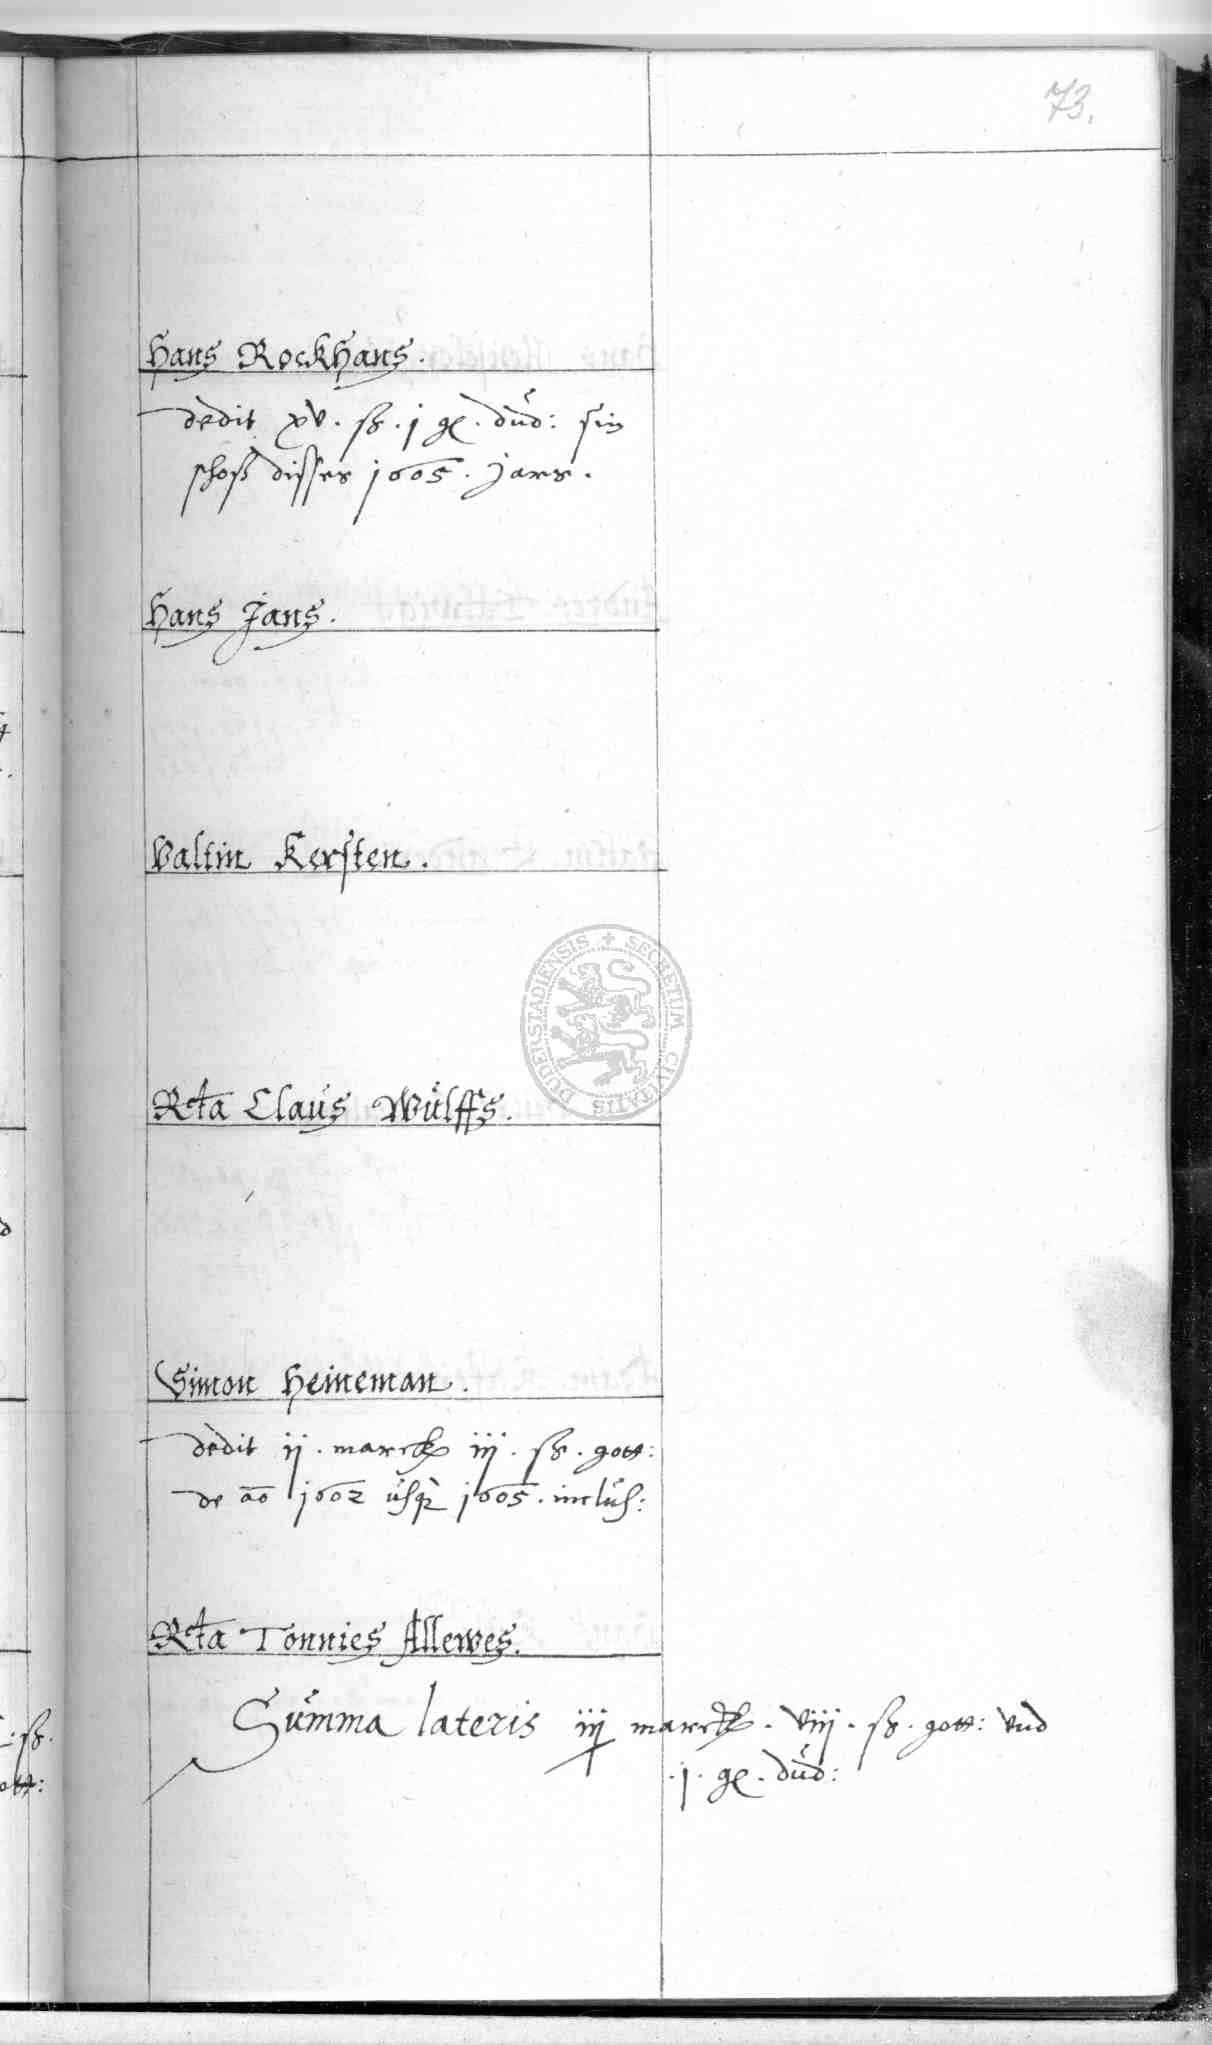 73.
Hans Rockhans.
dedit xv. ß. j ge. dud: sin
schoß disses 1605. jars.
Hans Jans.
Valtin Kersten.
DUDERSTADIENSIS + SECRETUM CIVITATIS
Rta Claus Wulffs.
Simon Heineman.
dedit ij. marck iij. ß. gott:
de ao 1602 usq 1605. inclus:
Rta Tonnies Allewes.
Summa lateris iij marck. viij. ß. gott: vnd
.j. ge. dud: